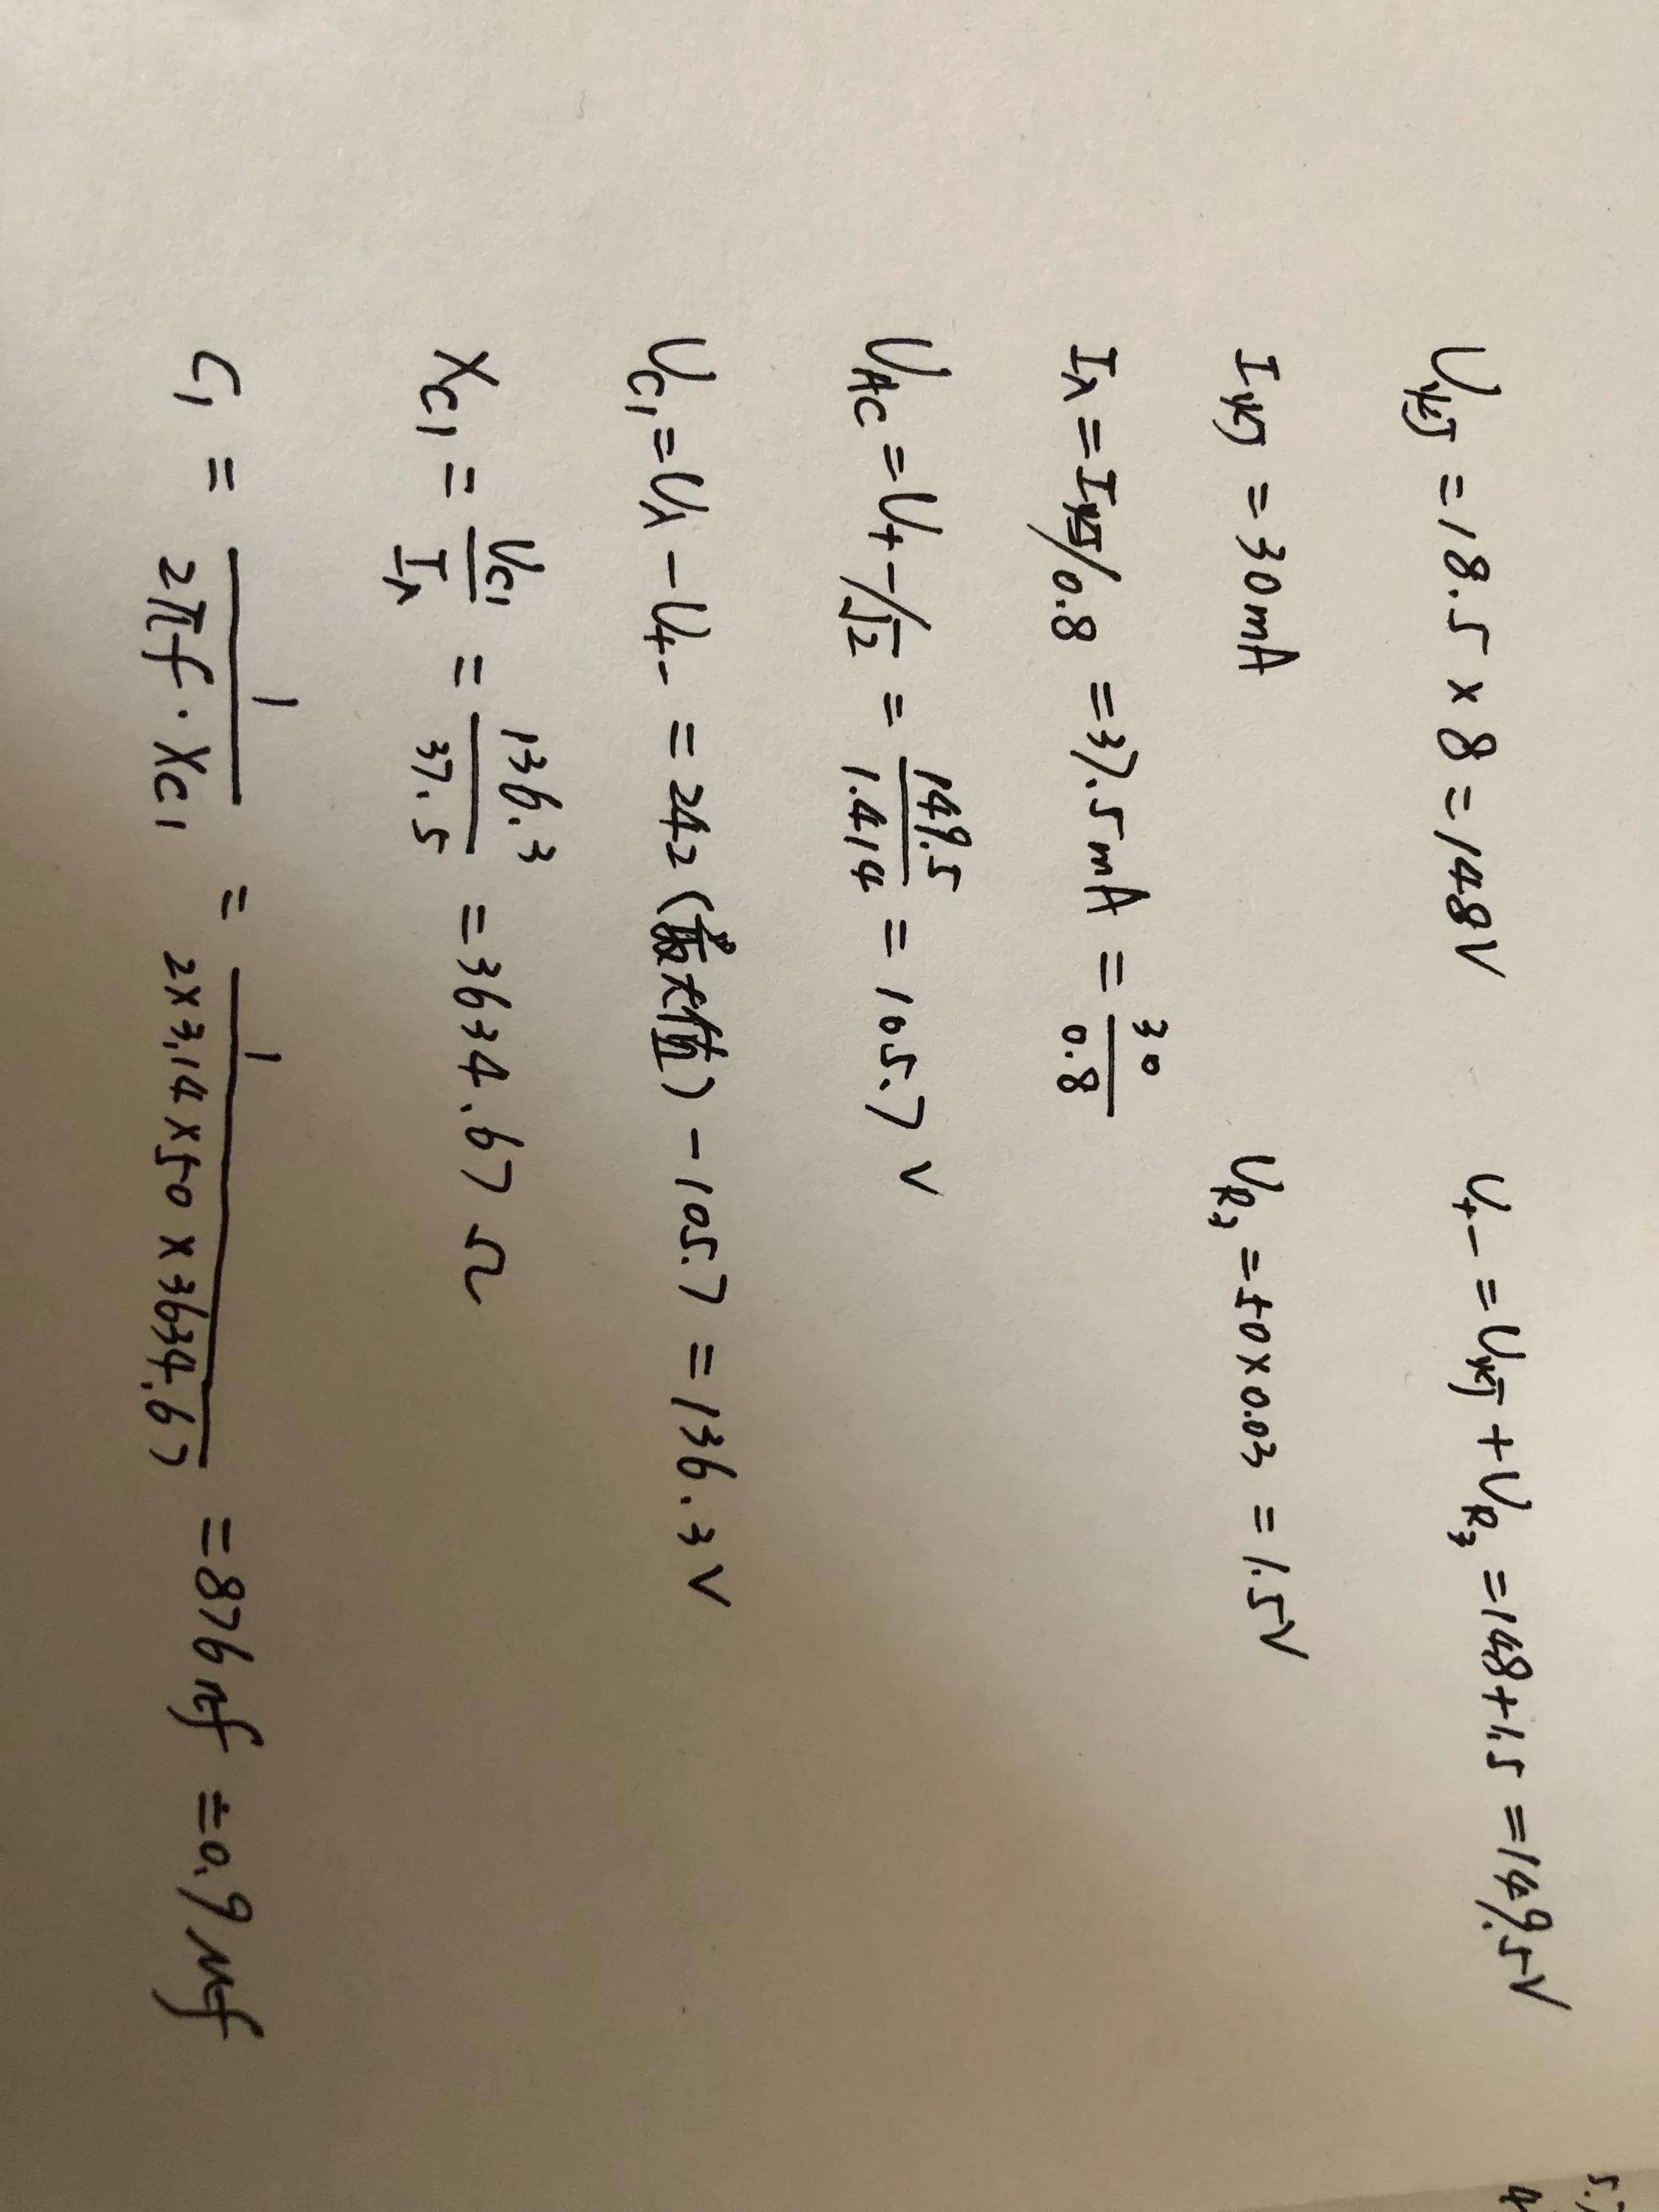 U灯 = 18.5 × 8 = 148V U+- = U灯 + UR3 = 148 + 1.5 = 149.5V
I灯 = 30mA UR3 = 50 × 0.03 = 1.5V
I入 = I灯/0.8 = 37.5mA = 30/0.8
UAC = U+-/√2 = 149.5/1.414 = 105.7V
UC1 = U入 - U+- = 242 (最大值) - 105.7 = 136.3V
XC1 = UC1/I入 = 136.3/37.5 = 3634.67Ω
C1 = 1/2πf·XC1 = 1/2×3.14×50×3634.67 = 876nf = 0.9μf